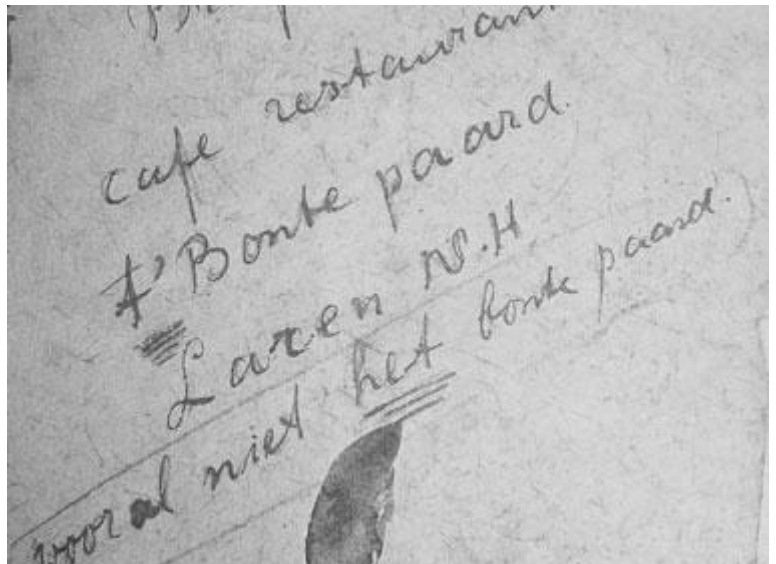 cafe restaurant
't Bonte paard.
Laren N.H
vooral niet het bonte paard.